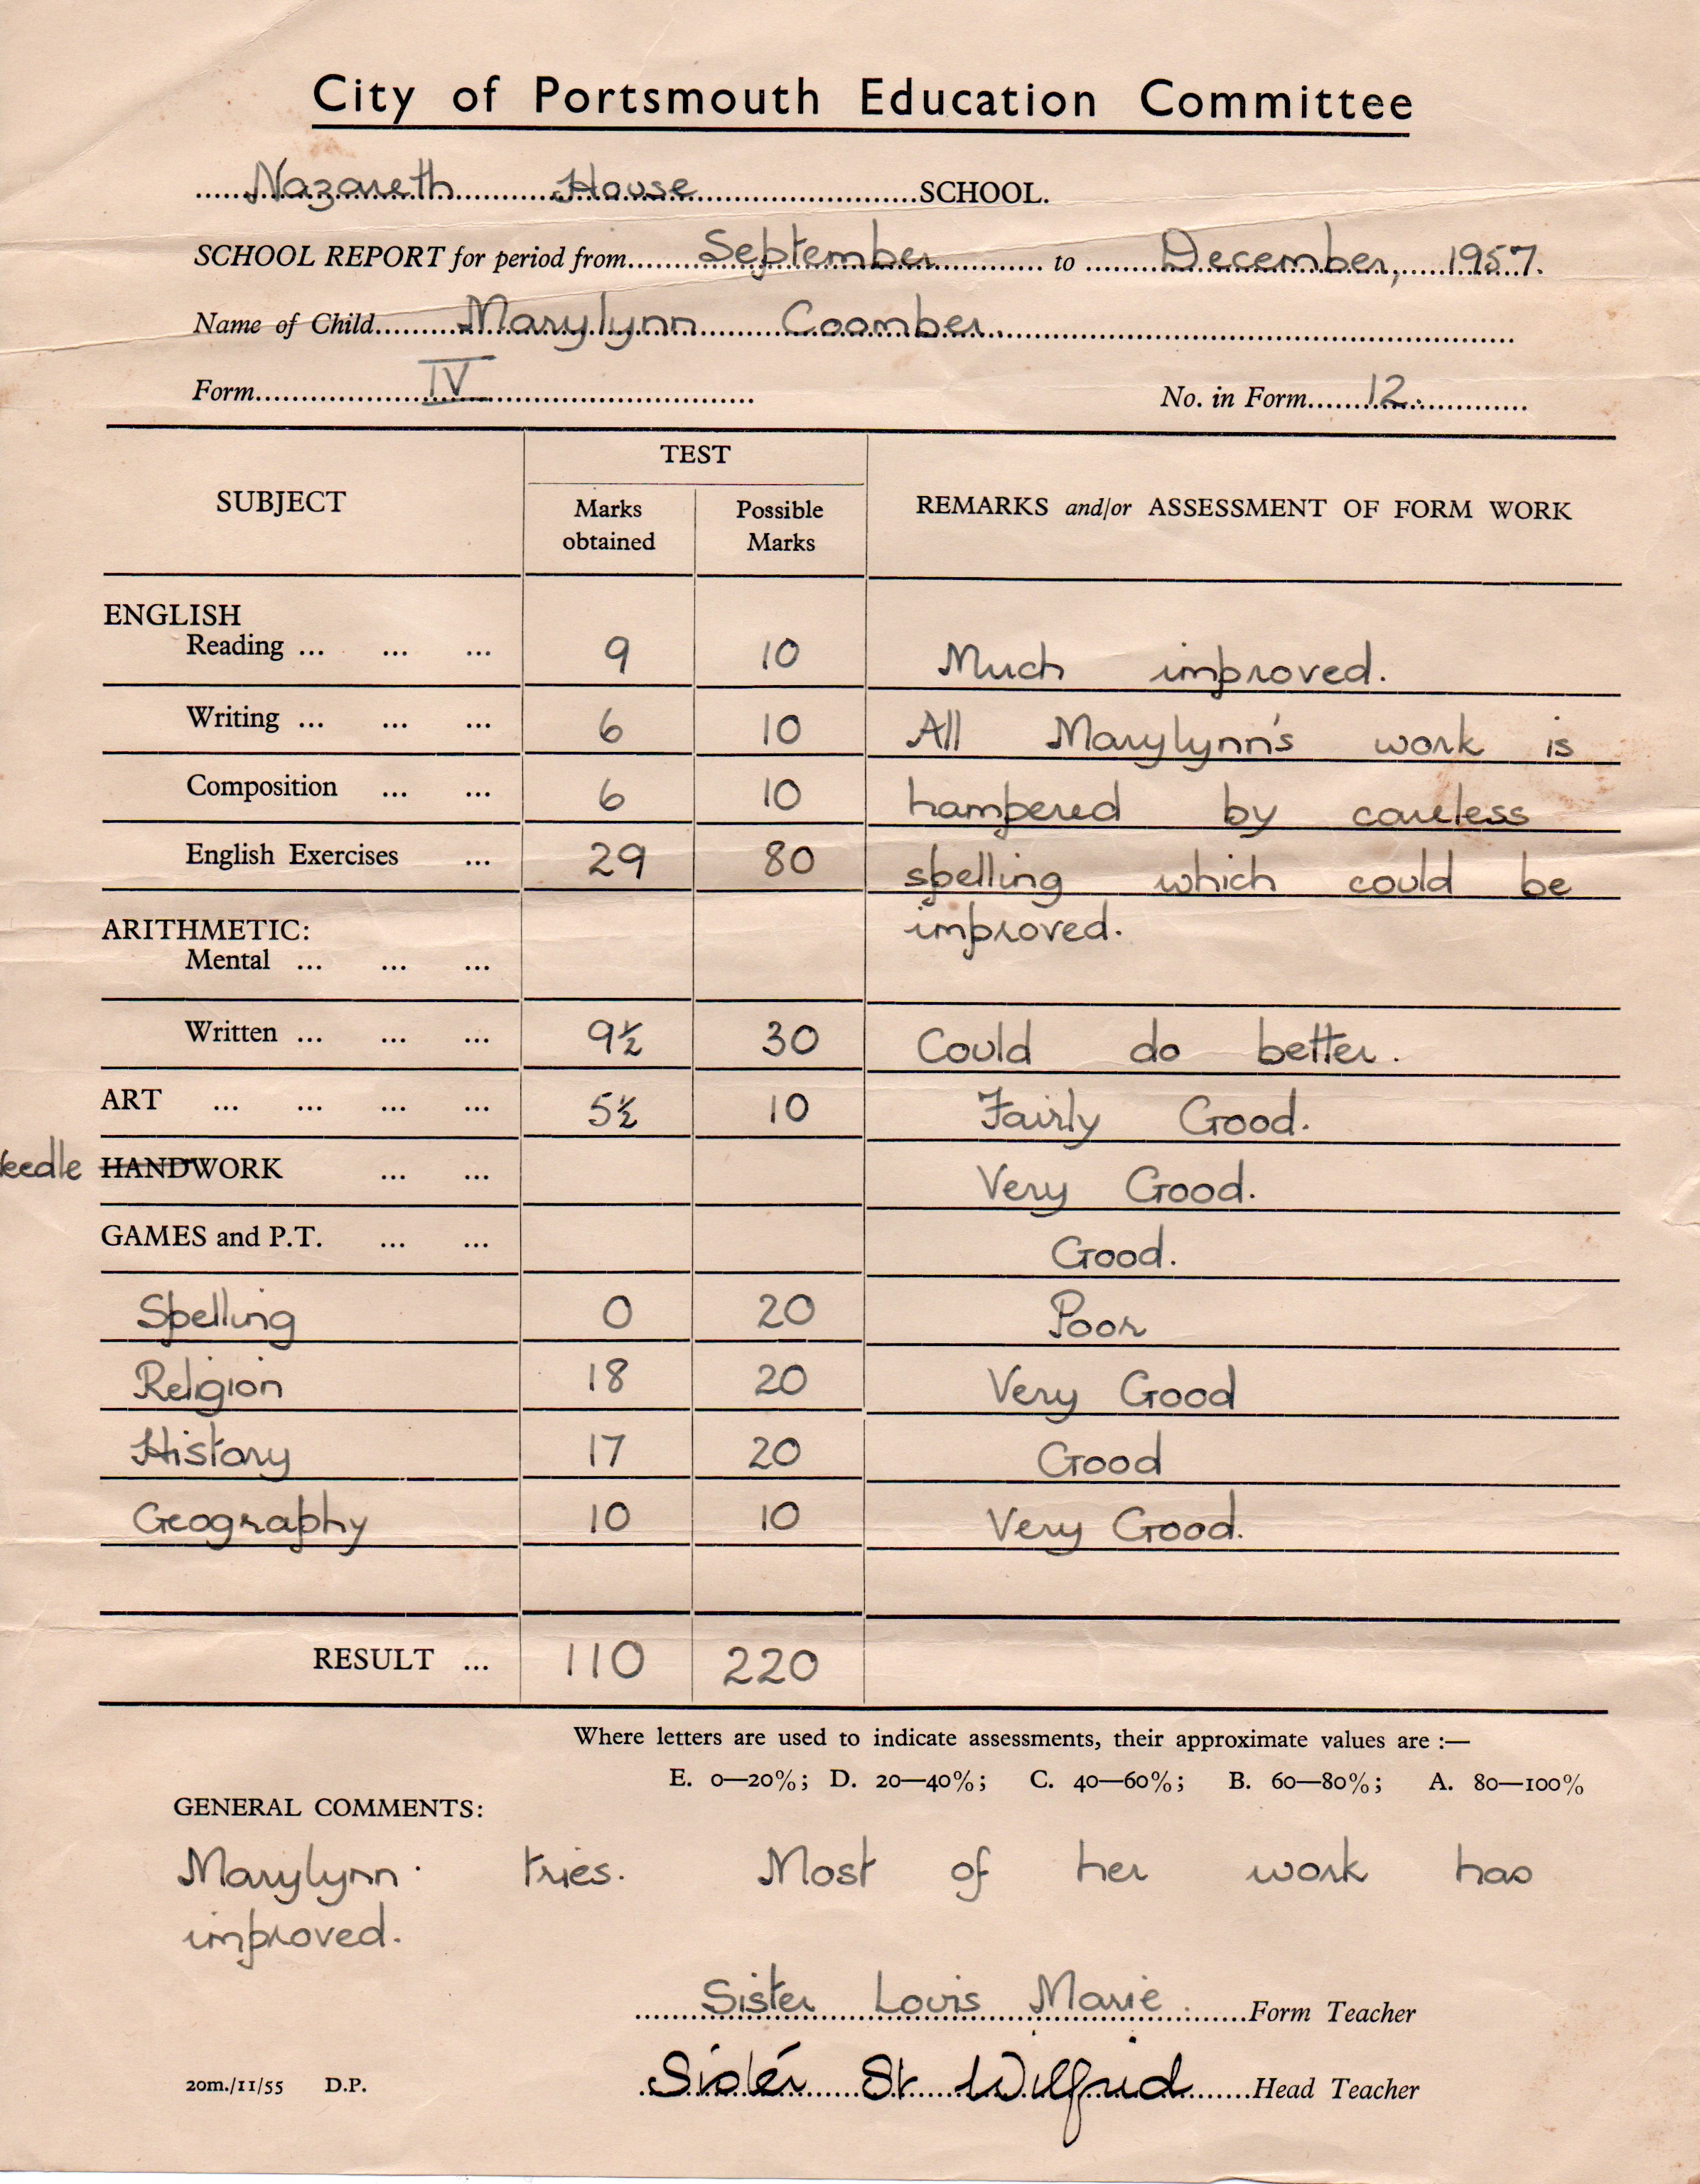 City of Portsmouth Education Committee
Nazareth House SCHOOL.
SCHOOL REPORT for period from September to December, 1957.
Name of Child Marylynn Coomber.
Form IV No. in Form 12.
SUBJECT TEST REMARKS and/or ASSESSMENT OF FORM WORK
Marks obtained Possible Marks
ENGLISH
Reading ... ... ... 9 10 Much improved.
Writing ... ... ... 6 10 All Marylynn's work is
Composition ... ... 6 10 hampered by careless
English Exercises ... 29 80 spelling which could be
ARITHMETIC: improved.
Mental ... ... ...
Written ... ... ... 9½ 30 Could do better.
ART ... ... ... ... 5½ 10 Fairly Good.
eedle HANDWORK ... ... Very Good.
GAMES and P.T. ... ... Good.
Spelling 0 20 Poor
Religion 18 20 Very Good
History 17 20 Good
Geography 10 10 Very Good.
RESULT ... 110 220
Where letters are used to indicate assessments, their approximate values are :—
E. 0—20%; D. 20—40%; C. 40—60%; B. 60—80%; A. 80—100%
GENERAL COMMENTS:
Marylynn tries. Most of her work has
improved.
Sister Louis Marie. Form Teacher
Sister St Wilfrid Head Teacher
20m./11/55 D.P.